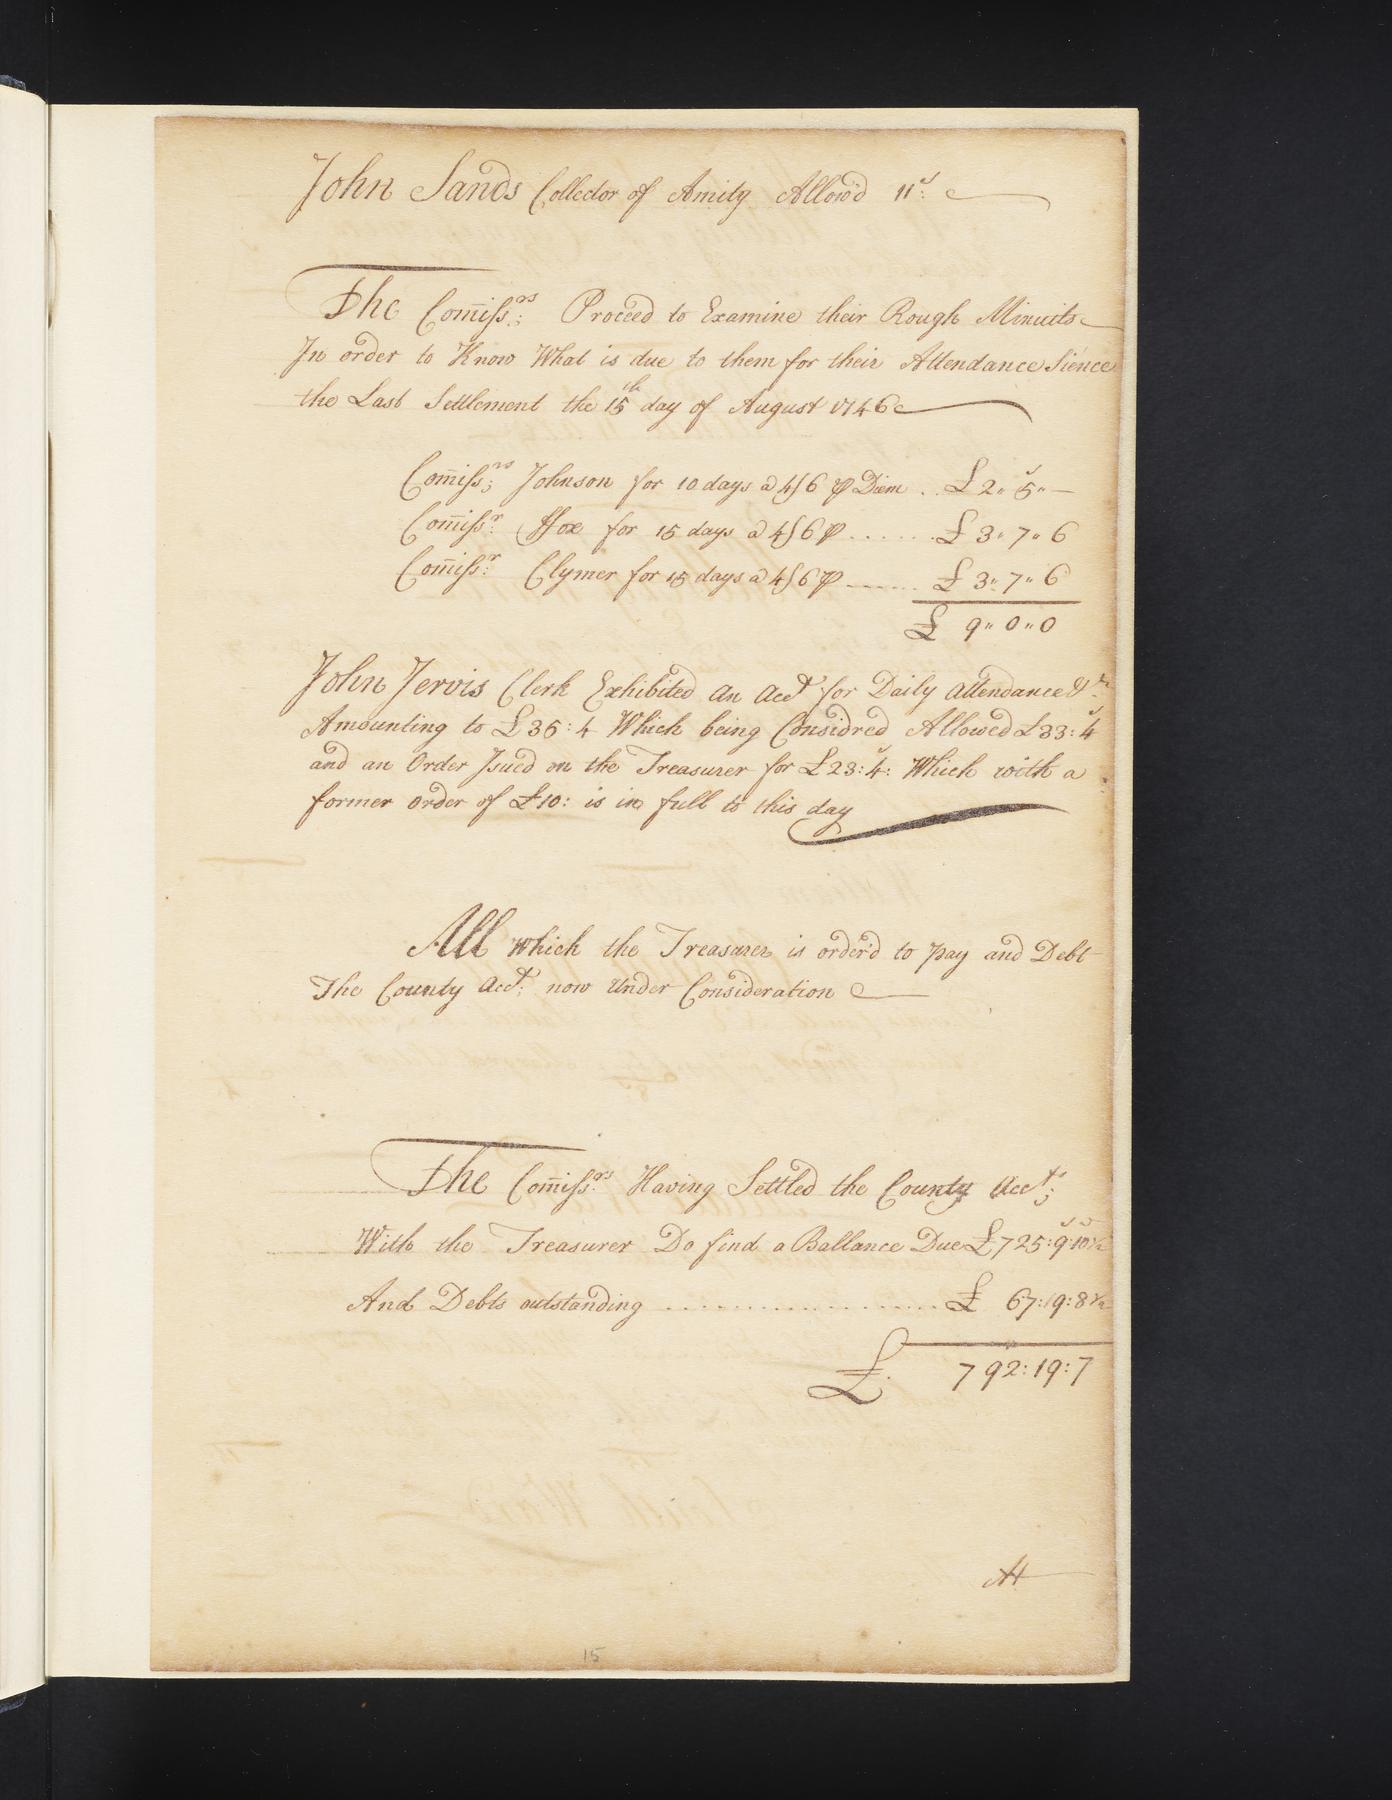 John Sands Collector of Amity Allow'd 11s:
The Com̅iss:rs Proceed to Examine their Rough Minuits
In order to Know What is due to them for their Attendance Sience
the Last Settlement the 15th day of August 1746
Com̅iss:rs Johnson for 10 days a 4/6 ⅌ Diem .. £ 2" 5" —
Com̅iss:r ffox for 15 days a 4/6 ⅌ ...... £ 3" 7" 6
Com̅iss:r Clymer for 15 days a 4/6 ⅌ ...... £ 3" 7" 6
£ 9" 0" 0
John Jervis Clerk Exhibited an Acct for Daily attendance &c:
Amounting to £35:4 Which being Considred Allowed £33:4s
and an Order Isued on the Treasurer for £23:4s: Which with a
former order of £10: is in full to this day
All which the Treasurer is order'd to pay and Debt
The County Acct: now under Consideration
The Com̅iss:rs Having Settled the County Accts;
With the Treasurer Do find a Ballance Due £725:9:10½
And Debts outstanding .................. £ 67:19:8½
£. 792:19:7
At
15